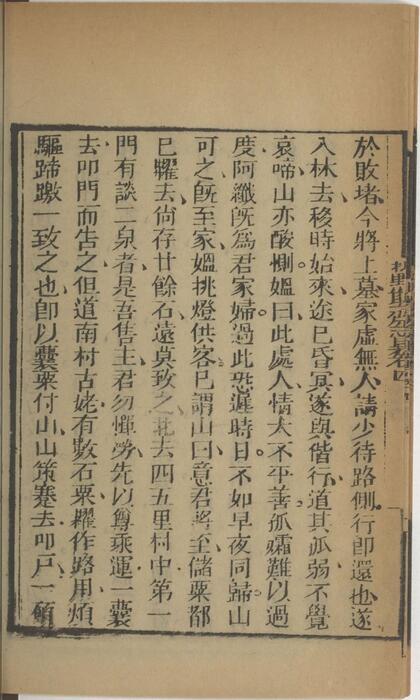 於敗堵今將上墓家虛無人請少待路側行即還也遂
入林去移時始來途已昏冥遂與偕行道其孤弱不覺
哀啼山亦酸惻媼曰此處人情大不平善孤孀難以過
度阿纖既爲君家婦過此恐遲時日不如早夜同歸山
可之既至家媼挑燈供客已謂山曰意君將至儲粟都
已糶去尚存廿餘石遠莫致之北去四五里村中第一
門有談二泉者是吾售主君勿憚勞先以尊乘運一囊
去叩門而告之但道南村古姥有數石粟糶作路用煩
驅蹄躈一致之也即以囊粟付山山策蹇去叩戶一碩